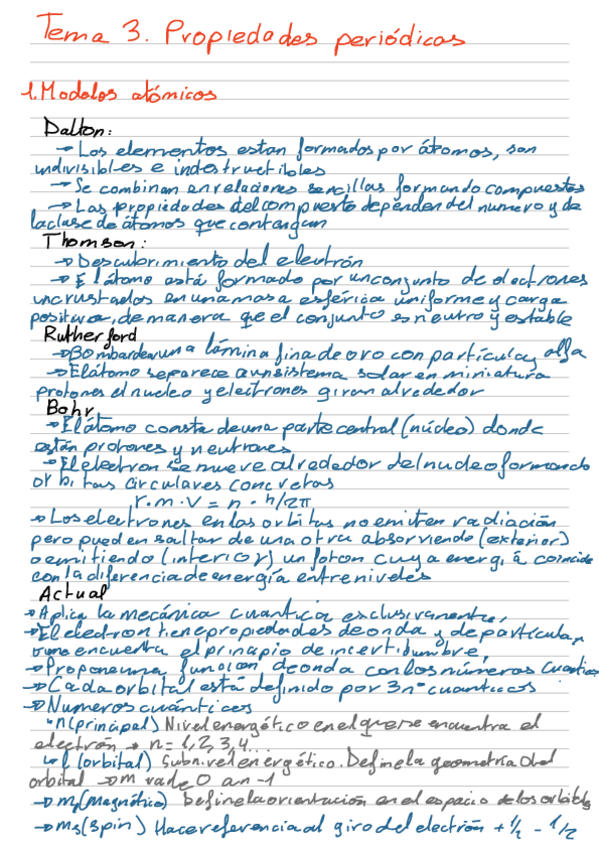 Tema 3. Propiedades periódicas
1. Modelos atómicos
Dalton:
→ Los elementos estan formados por átomos, son
indivisibles e indestructibles
→ Se combinan en relaciones sencillas formando compuestos
→ Las propiedades del compuesto dependen del numero y de
la clase de átomos que contengan
Thomson:
→ Descubrimiento del electrón
→ El átomo está formado por un conjunto de electrones
incrustados en una masa esférica uniforme y carga
positiva, de manera que el conjunto es neutro y estable
Rutherford
→ Bombardea una lámina fina de oro con partículas alfa
→ El átomo se parece a un sistema solar en miniatura
protones el nucleo y electrones giran alrededor
Bohr
→ El átomo consta de una parte central (núcleo) donde
están protones y neutrones
→ El electron se mueve alrededor del nucleo formando
orbitas circulares concretas
r·m·v = n·h/2π
→ Los electrones en las orbitas no emiten radiación
pero pueden saltar de una otra absorviendo (exterior)
o emitiendo (interior) un foton cuya energía coincide
con la diferencia de energía entre niveles
Actual
→ Aplica la mecánica cuantica exclusivamente,
→ El electron tiene propiedades de onda y de partícula,
encuentra el principio de incertidumbre,
→ Propone una funcion de onda con los números cuanticos
→ Cada orbital está definido por 3 nº cuanticos
→ Numeros cuánticos
↳ n (principal) Nivel energético en el que se encuentra el
electrón → n = 1, 2, 3, 4...
↳ l (orbital) Subnivel energético. Define la geometría del
orbital → m va de 0 a n-1
→ (magnético) Define la orientación en el espacio de los orbitales
→ ms (spin) Hace referencia al giro del electrón + 1/2 - 1/2